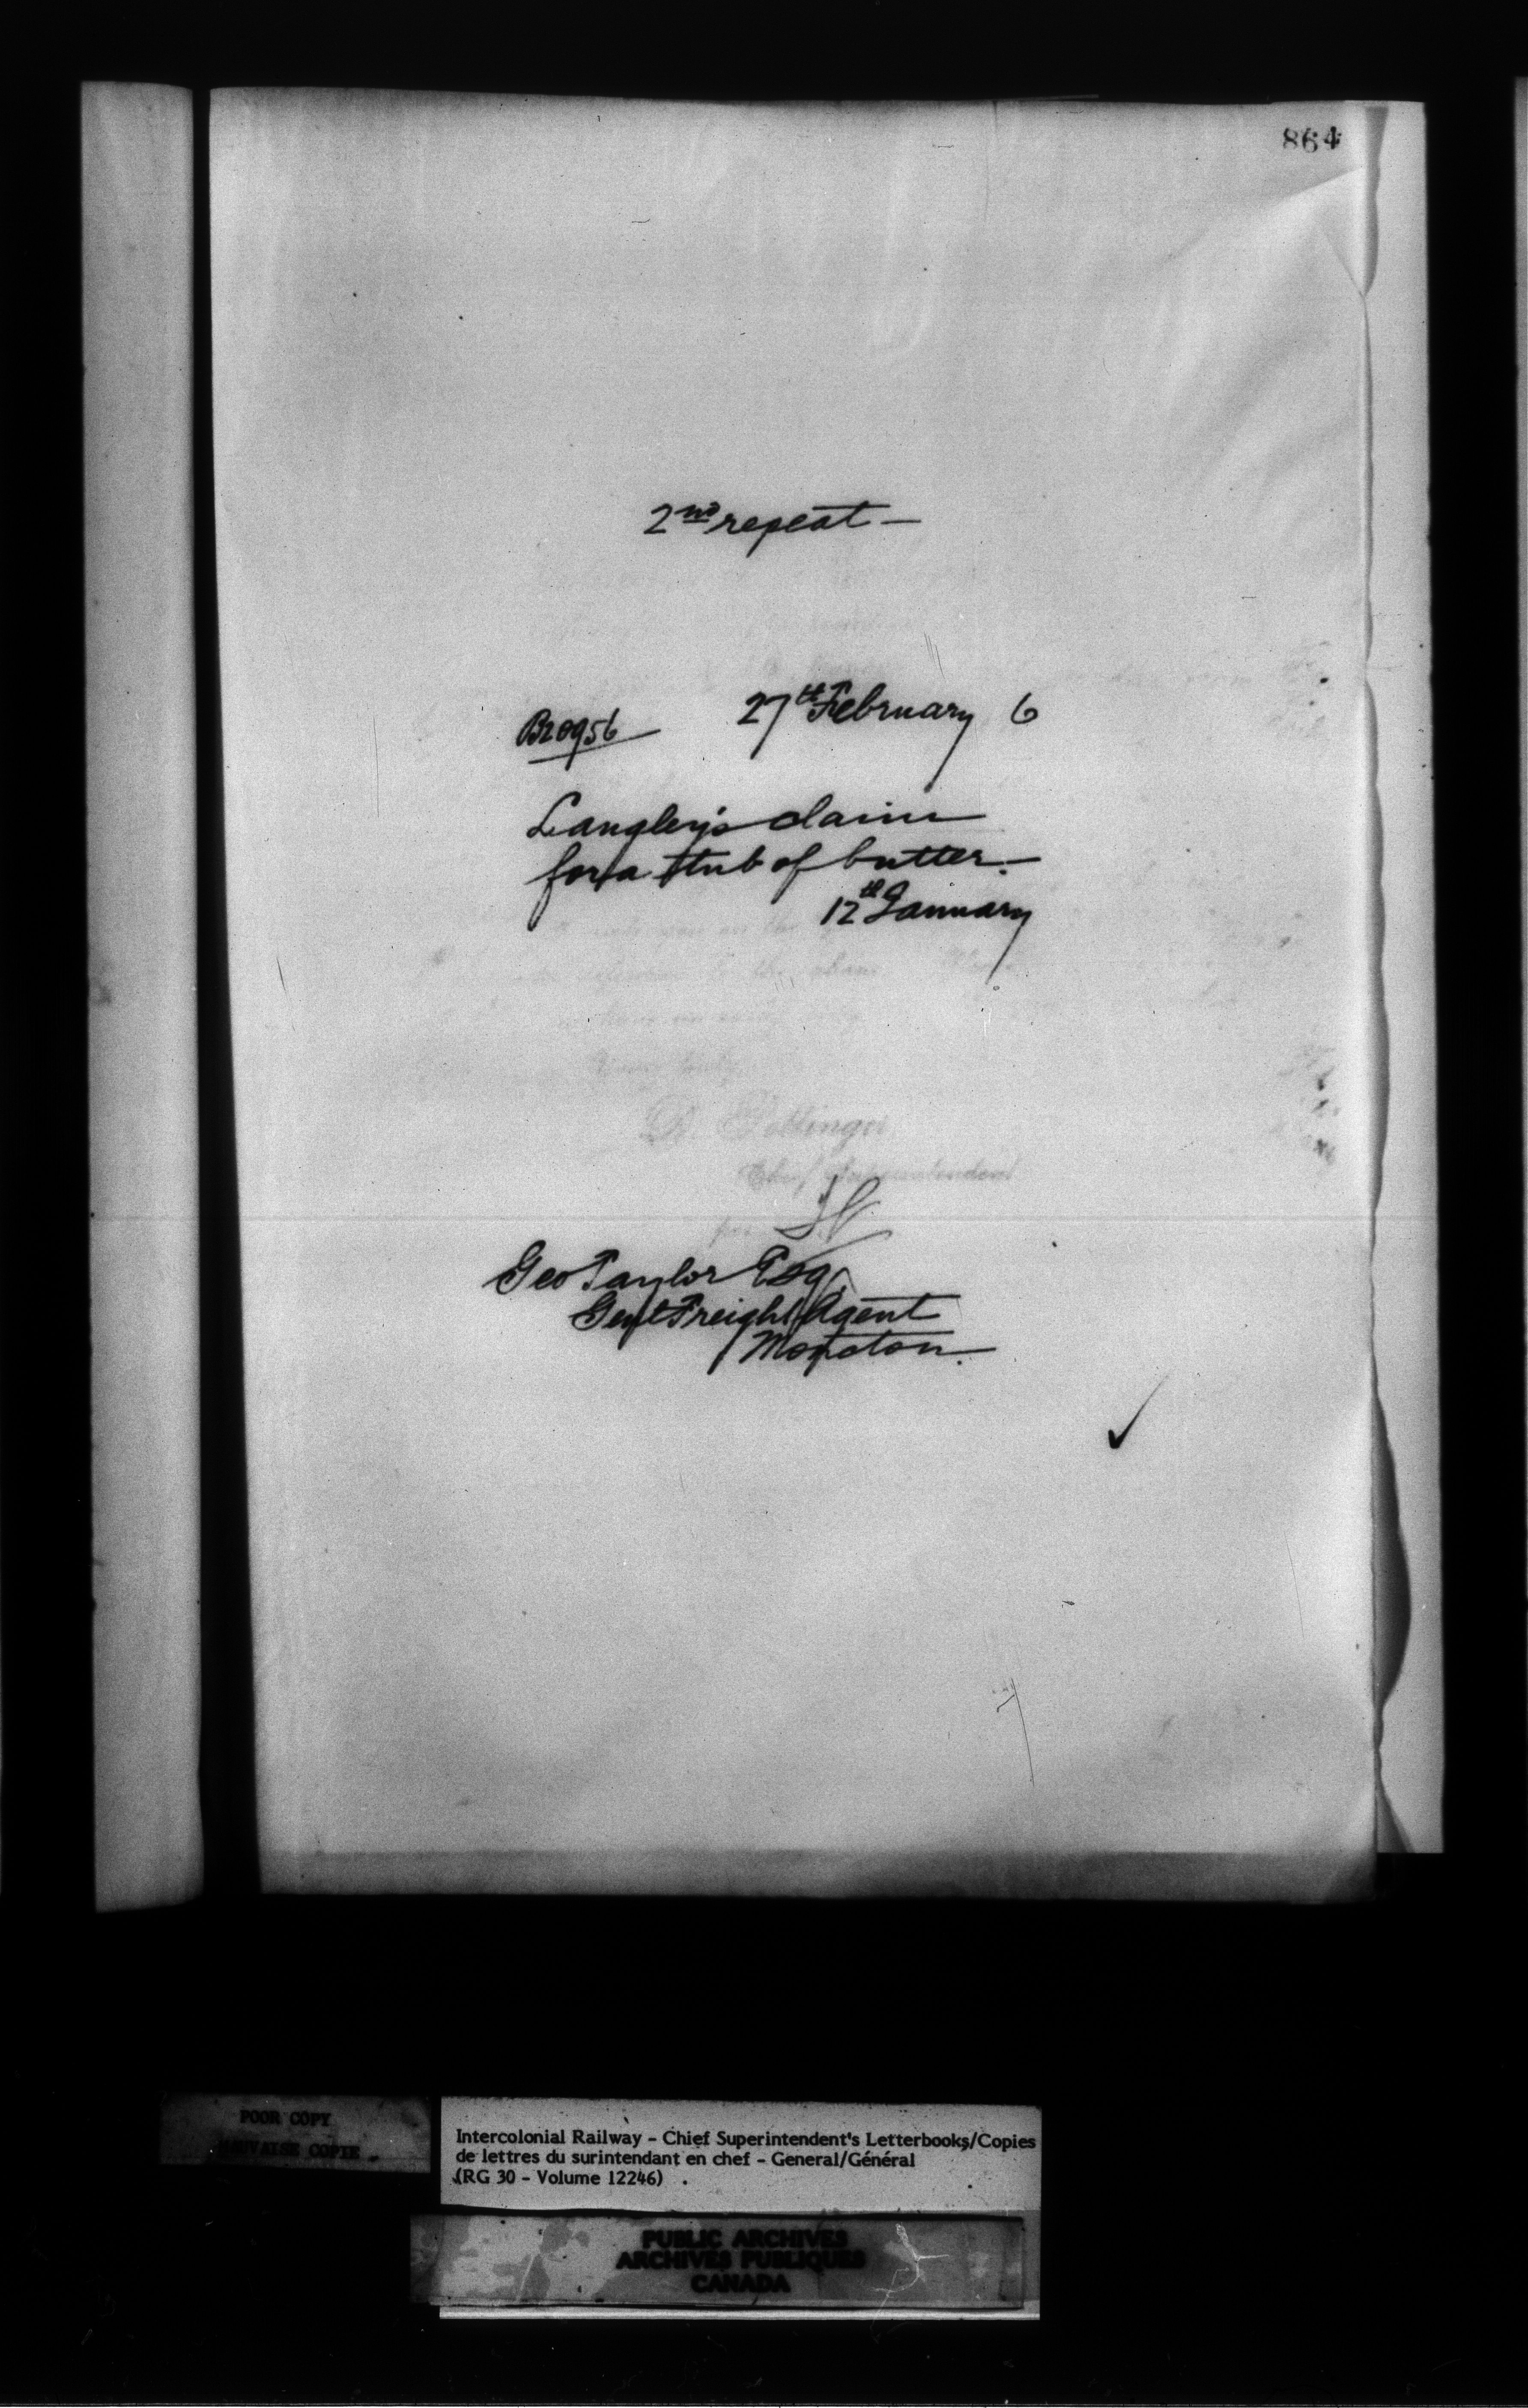 864
2nd repeat —
27th February 6
B20956
Langley's claim
for a tub of butter.—
12th January
yours truly
D. Pottinger
Chief Superintendent
Geo Taylor Esq
Genl Freight Agent
Moncton.
POOR COPY
MAUVAISE COPIE
Intercolonial Railway - Chief Superintendent's Letterbooks/Copies
de lettres du surintendant en chef - General/Général
(RG 30 - Volume 12246)
PUBLIC ARCHIVES
ARCHIVES PUBLIQUES
CANADA